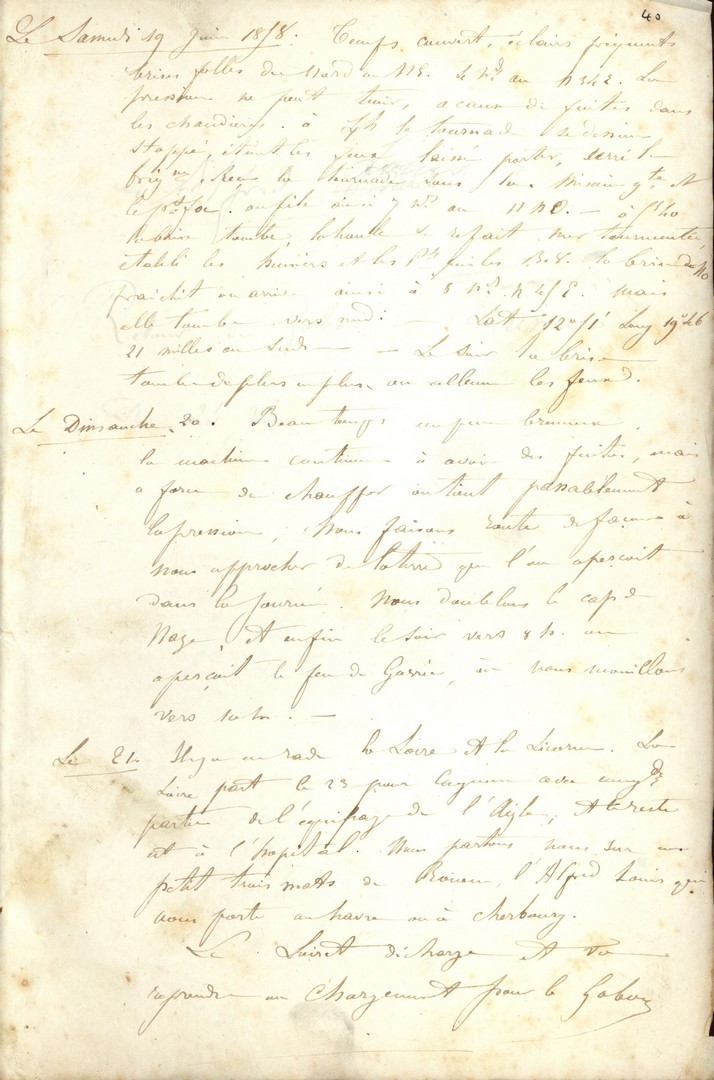 40
Le Samedi 19 Juin 1858. Temps couvert, éclairs fréquents
brises folles du Nord au NE. le Cap au N34E. La
pression ne peut tenir, a cause de fuites dans
les chaudières. à la tournade se dessine
stoppé, éteint les feux laissé porter, serré la
Reçu la tournade sous la Misaine et
le pt foc. on file ainsi 7 nds au NNO. — à 5h40
la brise tombe, la houle se refait mer tourmentée
établi les huniers et les la brise du No
fraichit on arrive ainsi à 8 nds N45E. mais
elle tombe vers midi — Latde 12°51' Long 19°46
21 milles au Sud — Le soir la brise
tombe de plus en plus, on allume les feux.
Le Dimanche 20. Beau temps un peu brumeux
la machine continue à avoir des fuites, mais
a force de chauffer on tient passablement
la pression; Nous faisons route de façon à
nous approcher de la terre que l'on aperçoit
dans la journée. Nous doublons le cap de
Naze, et enfin le soir vers 8 h. on
aperçoit le feu de Gorée, où nous mouillons
vers
Le 21. Il y a en rade la Loire et la Licorne. La
Loire part le 23 pour Cayenne avec une gde
partie de l'équipage de l'Aigle, et le reste
est à l'hopital. Nous partons nous sur un
petit trois mats de Rouen, l'Alfred Louis qui
nous porte au havre ou à Cherbourg.
Le Loiret décharge et va
reprendre un chargement pour le Gabon